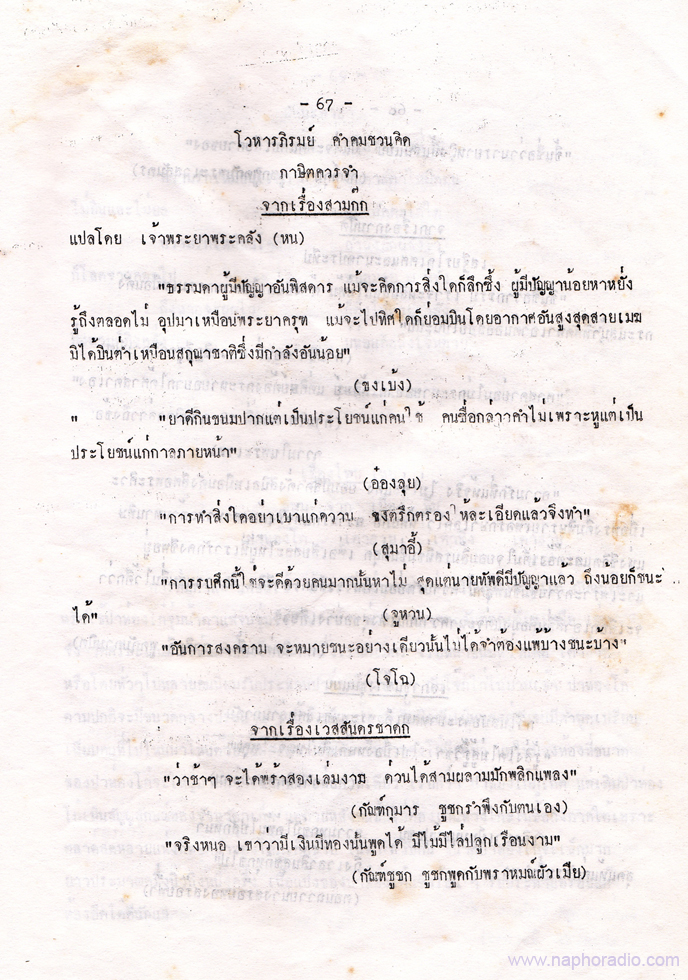 - 67 -
โวหารภิรมย์ คำคมชวนคิด
ภาษิตควรจำ
จากเรื่องสามก๊ก
แปลโดย เจ้าพระยาพระคลัง (หน)
"ธรรมดาผู้มีปัญญาอันพิสดาร แม้จะคิดการสิ่งใดก็ลึกซึ้ง ผู้มีปัญญาน้อยหาหยั่ง
รู้ถึงตลอดไม่ อุปมาเหมือนพระยาครุฑ แม้จะไปทิศใดก็ย่อมบินโดยอากาศอันสูงสุดสายเมฆ
มิได้บินต่ำเหมือนสกุณาชาติซึ่งมีกำลังอันน้อย"
(ขงเบ้ง)
" "ยาดีกินขมปากแต่เป็นประโยชน์แก่คนไข้ คนซื่อกล่าวคำไม่เพราะหูแต่เป็น
ประโยชน์แก่กาลภายหน้า"
(อ๋องลุย)
"การทำสิ่งใดอย่าเบาแก่ความ จงตรึกตรองให้ละเอียดแล้วจึงทำ"
(สุมาอี้)
"การรบศึกนี้ใช่จะดีด้วยคนมากนั้นหาไม่ สุดแต่นายทัพดีมีปัญญาแล้ว ถึงน้อยก็ชนะ
ได้" (จูหวน)
"อันการสงคราม จะหมายชนะอย่างเดียวนั้นไม่ได้จำต้องแพ้บ้างชนะบ้าง"
(โจโฉ)
จากเรื่องเวสสันดรชาดก
"ว่าช้าๆ จะได้พร้าสองเล่มงาม ด่วนได้สามผลามมักพลิกแพลง"
(กัณฑ์กุมาร ชูชกรำพึงกับตนเอง)
"จริงหนอ เขาว่ามีเงินมีทองนั้นพูดได้ มีไม้มีไล่ปลูกเรือนงาม"
(กัณฑ์ชูชก ชูชกพูดกับพราหมณ์ผัวเมีย)
www.naphoradio.com